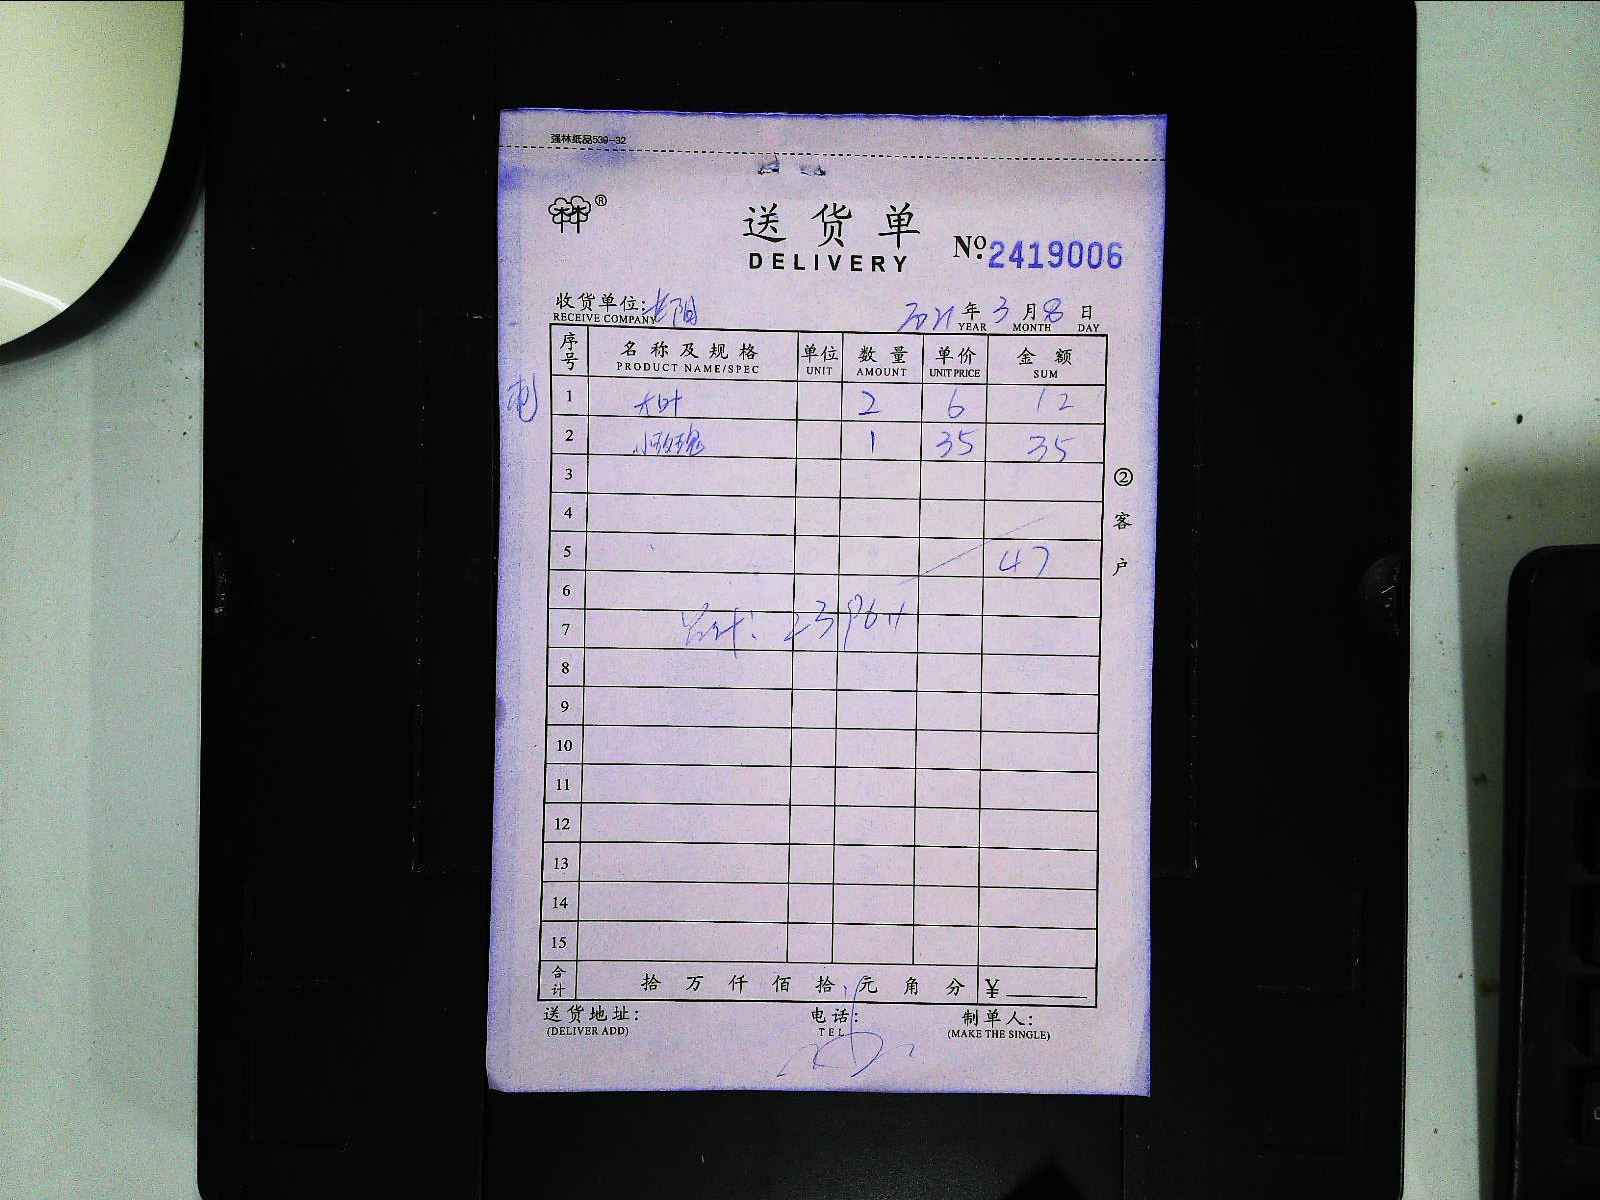 强林纸品539-32
林林®
送货单
DELIVERY
№.2419006
收货单位:老阳
RECEIVE COMPANY
2021年3月8日
YEAR MONTH DAY
序号 名称及规格 单位 数量 单价 金额
PRODUCT NAME/SPEC UNIT AMOUNT UNIT PRICE SUM
1 大叶 2 6 12
2 小玫瑰 1 35 35
3
4
5 47
6
7
8
9
10
11
12
13
14
15
②客户
合计 拾万仟佰拾元角分 ¥
送货地址: 电话: 制单人:
(DELIVER ADD) TEL (MAKE THE SINGLE)